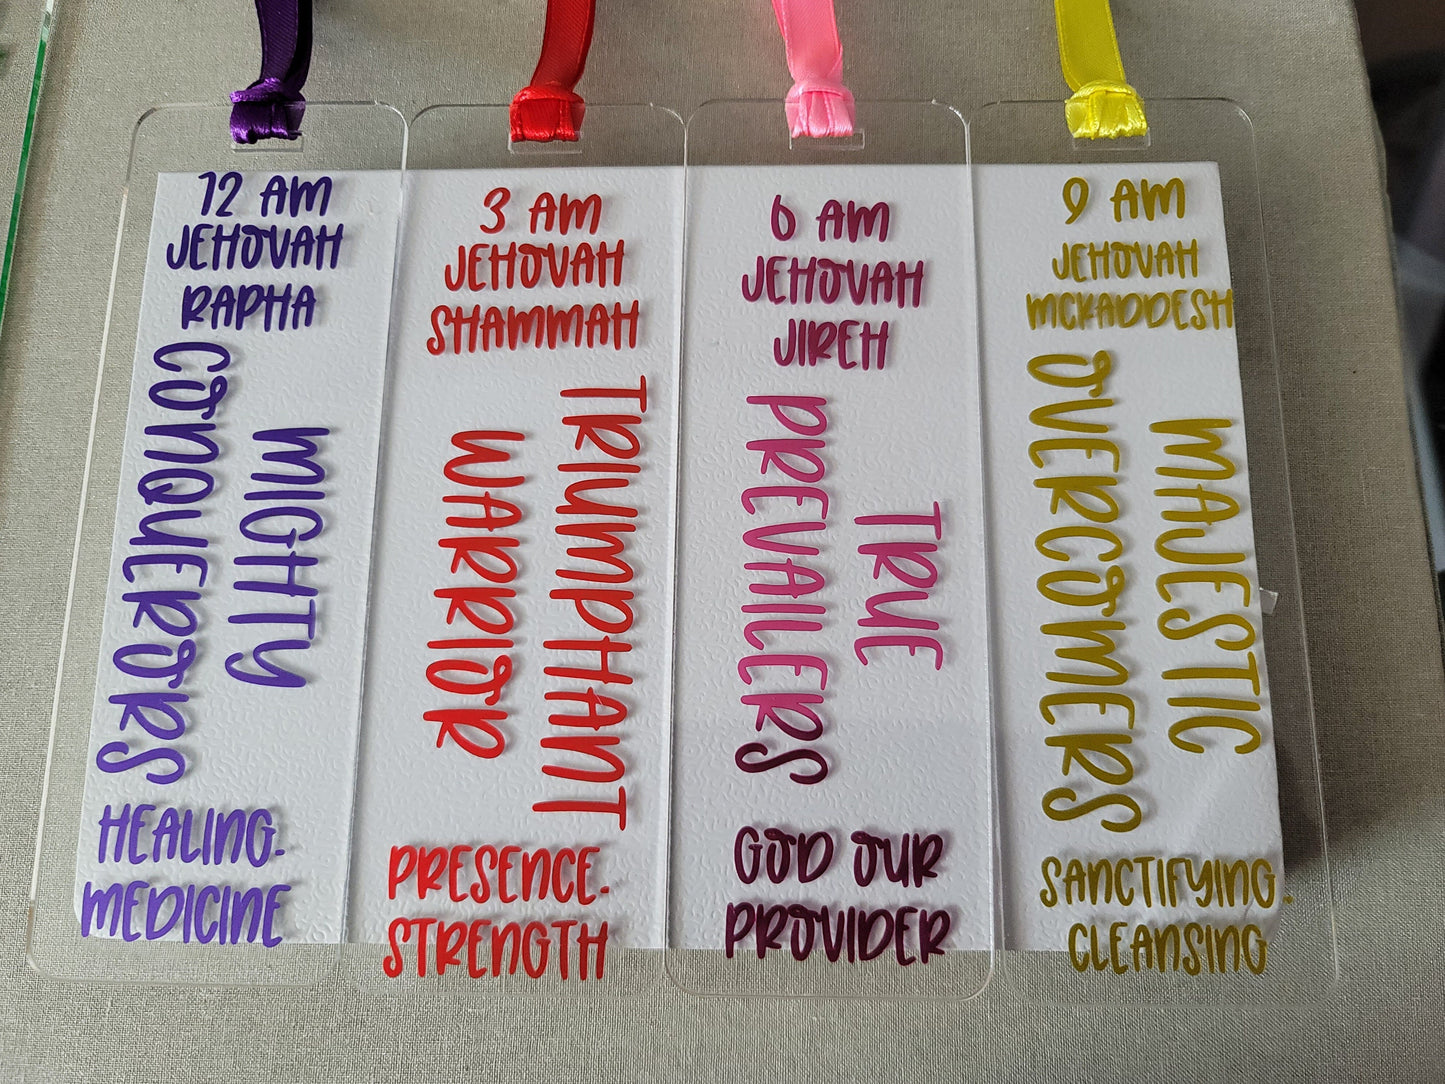 12 AM
JEHOVAH
RAPHA
MIGHTY
CONQUERORS
HEALING-
MEDICINE
3 AM
JEHOVAH
SHAMMAH
TRIUMPHANT
WARRIOR
PRESENCE-
STRENGTH
6 AM
JEHOVAH
JIREH
TRUE
PREVAILERS
GOD OUR
PROVIDER
9 AM
JEHOVAH
MCKADDESH
MAJESTIC
OVERCOMERS
SANCTIFYING-
CLEANSING